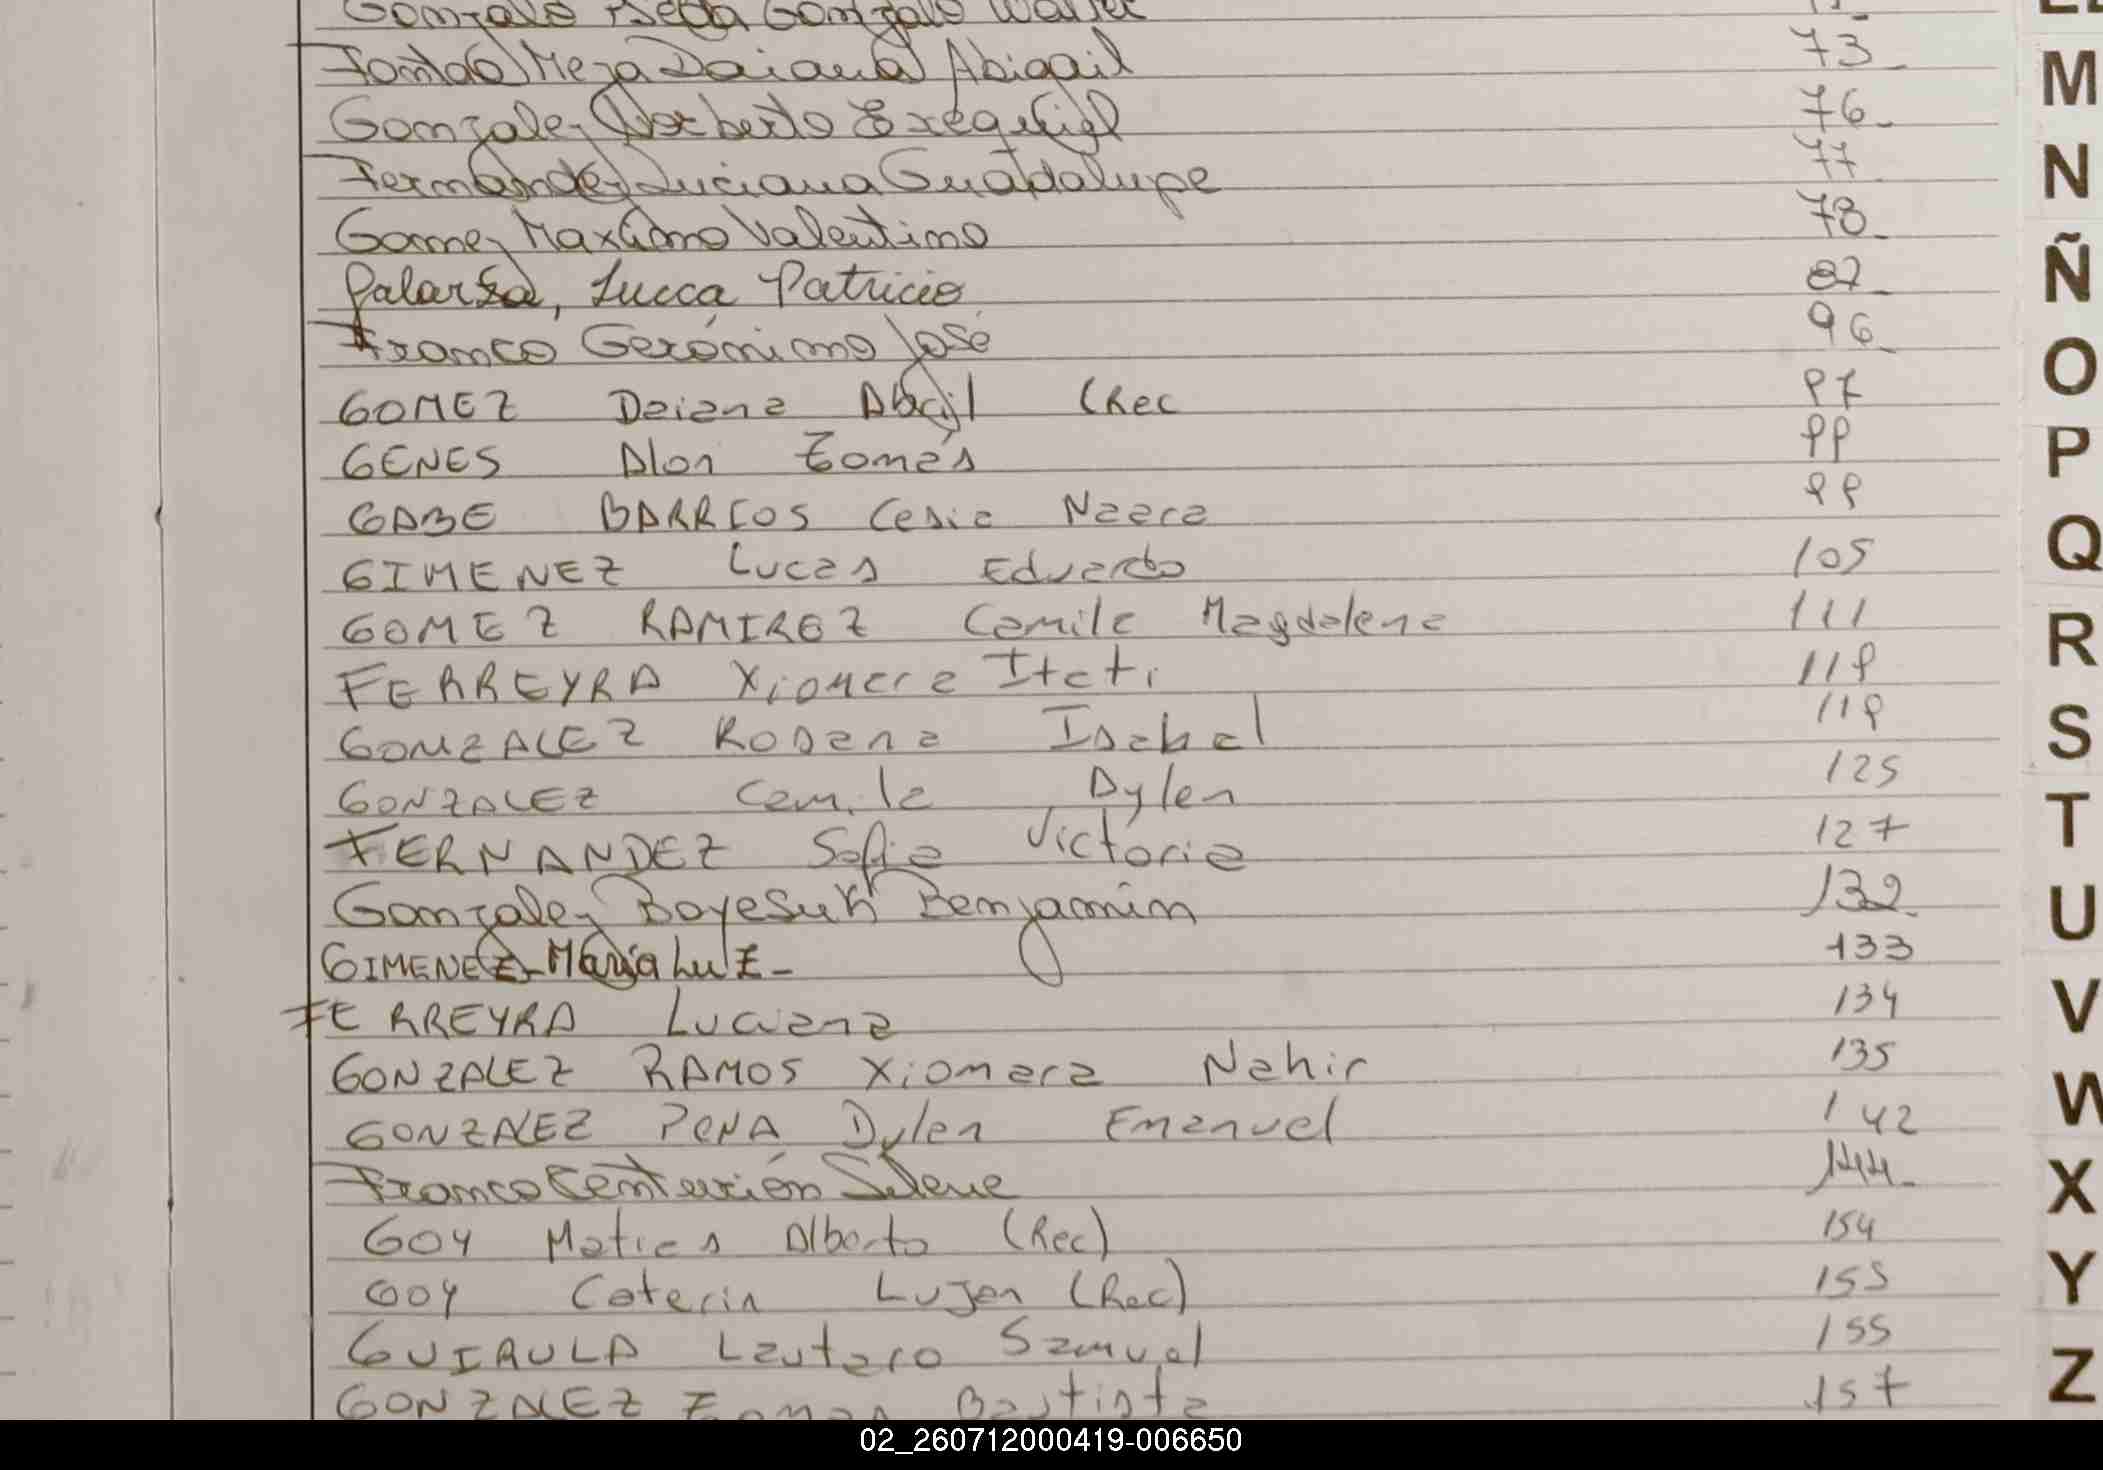 Gonzalo Gonzalo Walter
Meza Daiana Abigail 73
Gonzalez Norberto Exequiel 76
Fernandez Luciana Guadalupe 77
Gomez Maximo Valentino 78
Galarza, Lucca Patricio 87
Franco Gerónimo José 96
GOMEZ Daiana Abigil (Rec 97
GENES Alan Tomás 99
GABE BARRIOS Cesia Naara 99
GIMENEZ Lucas Eduardo 105
GOMEZ RAMIREZ Camila Magdalena 111
FERREYRA Xiomara Itatí 119
GONZALEZ Rosana Isabel 119
GONZALEZ Camila Dylan 125
FERNANDEZ Sofia Victoria 127
Gonzalez Benjamin 132
GIMENEZ - Maria Luz - 133
FERREYRA Luciana 134
GONZALEZ RAMOS Xiomara Nahir 135
GONZALEZ PEÑA Dylan Emanuel 142
Franco Centurión Selene 144
GOY Matias Alberto (Rec) 154
GOY Caterin Lujan (Rec) 155
GUIRAULA Lautaro Samuel 155
GONZALEZ Bautista 157
M
N
Ñ
O
P
Q
R
S
T
U
V
W
X
Y
Z
02_260712000419-006650